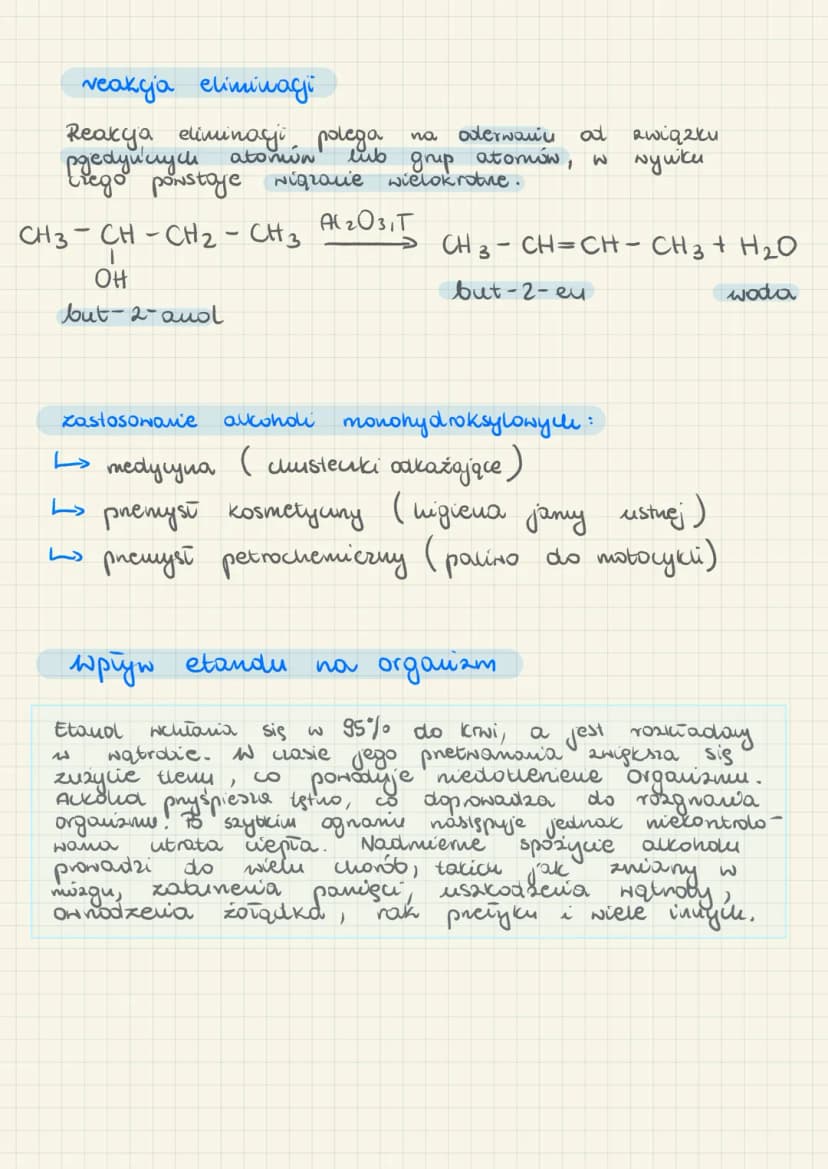 reakcja eliminacji
Reakcja eliminacji polega na oderwaniu od związku
pojedynczych atomów lub grup atomów, w wyniku
czego powstaje wiązanie wielokrotne.
CH3 - CH - CH2 - CH3 Al2O3,T → CH3 - CH = CH - CH3 + H2O
OH
but-2-en woda
but-2-anol
zastosowanie alkoholi monohydroksylowych:
↳ medycyna (chusteczki odkażające)
↳ przemysł kosmetyczny (higiena jamy ustnej)
↳ przemysł petrochemiczny (paliwo do motocykli)
Wpływ etanolu na organizm
Etanol wchłania się w 95% do krwi, a jest rozkładany
w wątrobie. W czasie jego przetwarzania zwiększa się
zużycie tlenu, co powoduje niedotlenienie organizmu.
Alkohol przyśpiesza tętno, co doprowadza do rozgrzania
organizmu. Po szybkim ogrzaniu następuje jednak niekontrolo-
wana utrata ciepła. Nadmierne spożycie alkoholu
prowadzi do wielu chorób, takich jak zmiany w
mózgu, zaburzenia pamięci, uszkodzenia wątroby,
owrzodzenia żołądka, rak przełyku i wiele innych.